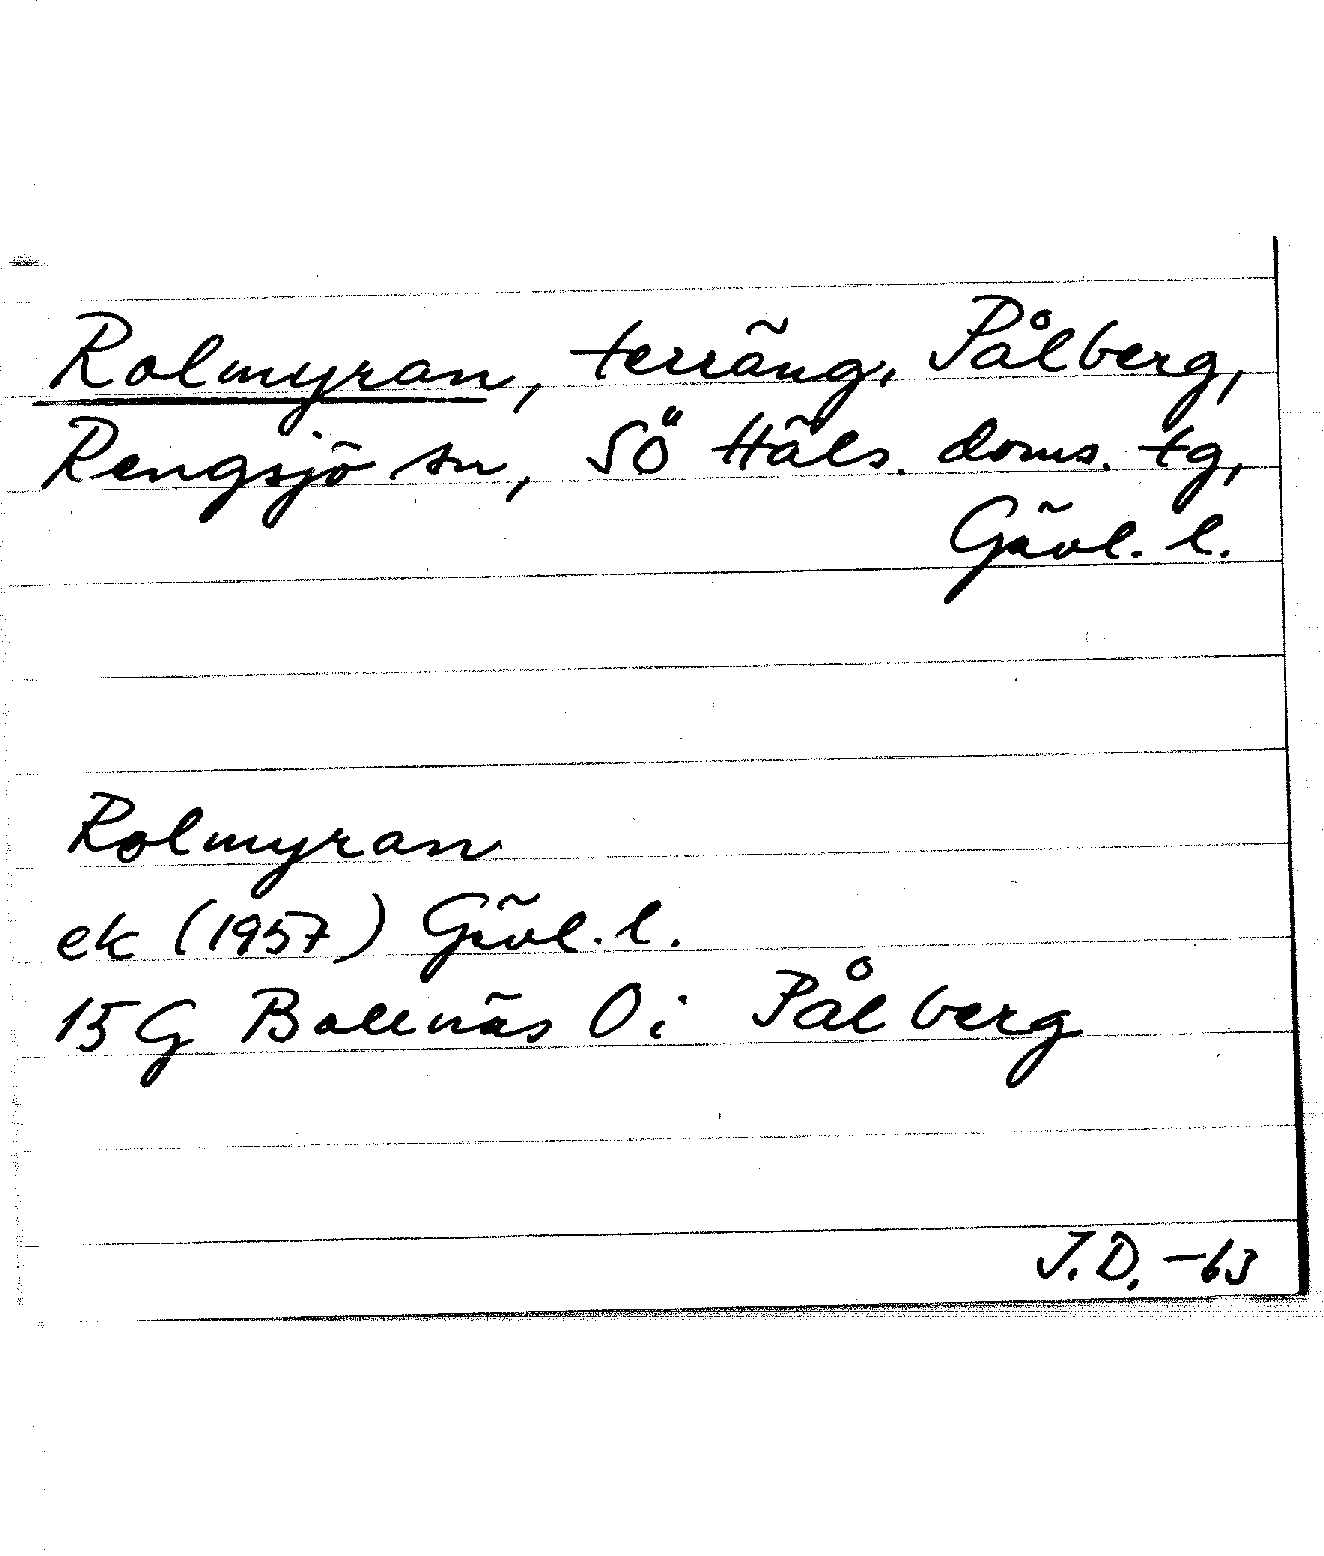 Rolmyran, terräng, Pålberg,
Rengsjö sn, SÖ Häls. doms. tg,
Gävl. l.
Rolmyran
ek (1957) Gävl. l.
15G Bollnäs Oi Pålberg
J.D. -63